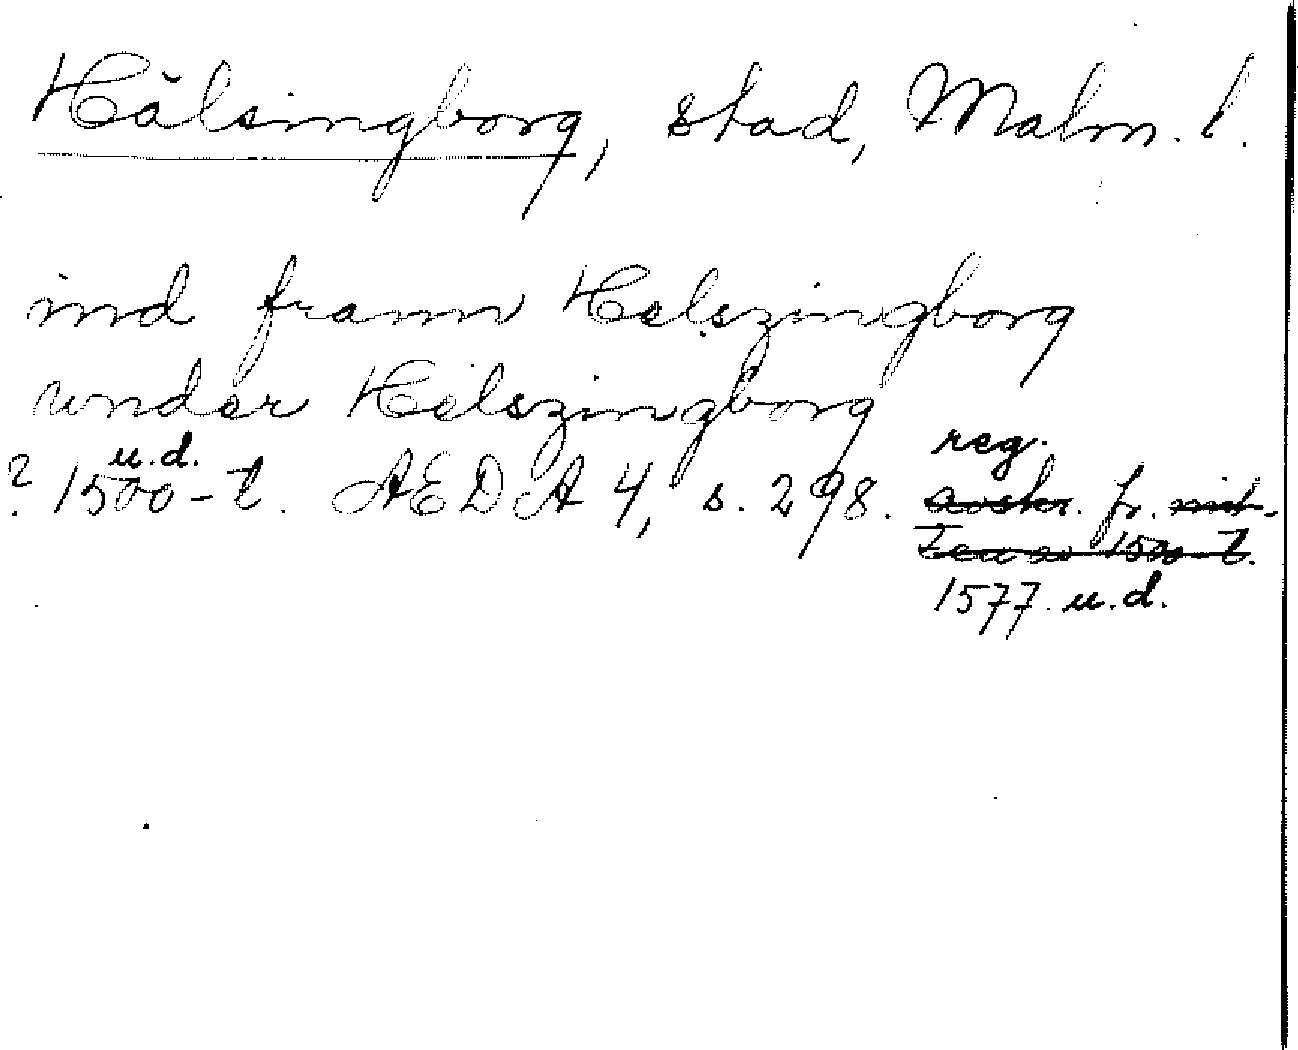 Hälsingborg, stad, Malm. l.
ind framm Helszingborg
under Helszingborg
reg.
u.d.
? 1500-t. AEDA 4, s. 298. avskr. fr. mit-
ten av 1500-t.
1577 u.d.